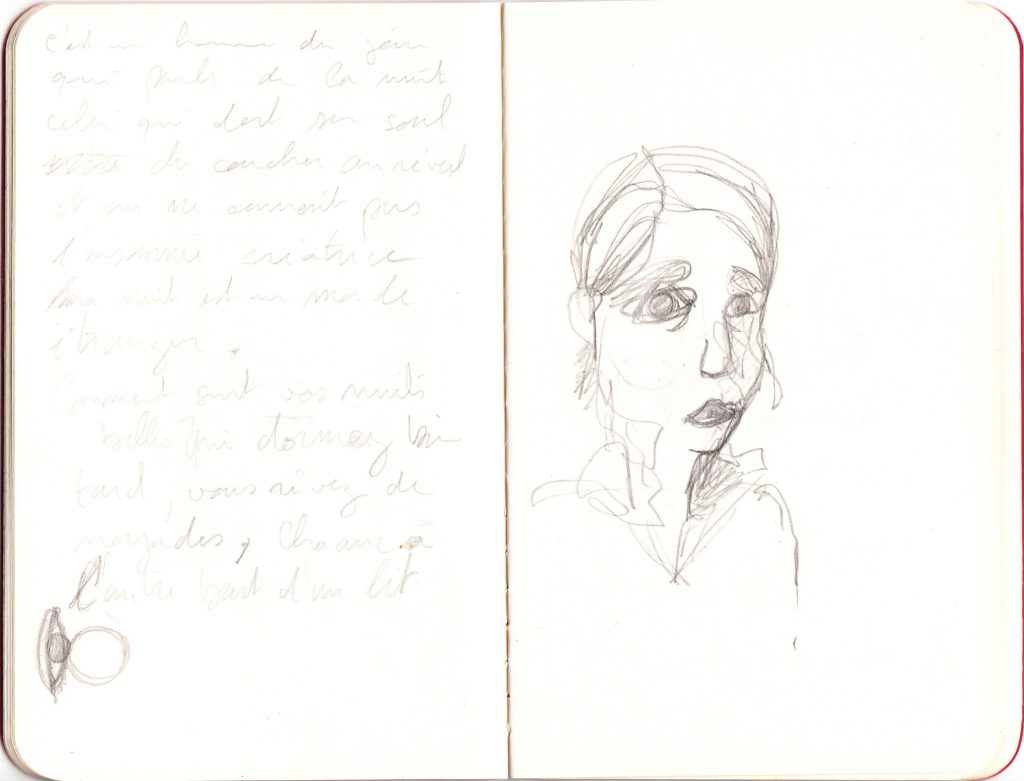 c'est un homme du jour
qui parle de la nuit
celui qui dort son soul
du coucher au réveil
et qui ne connait pas
l'insomnie créatrice
nuit est un monde
étranger.
Comment sont vos nuits
belles qui dormez bien
tard, vous rêvez de
noyades, Chacune à
L'autre bout d'un lit